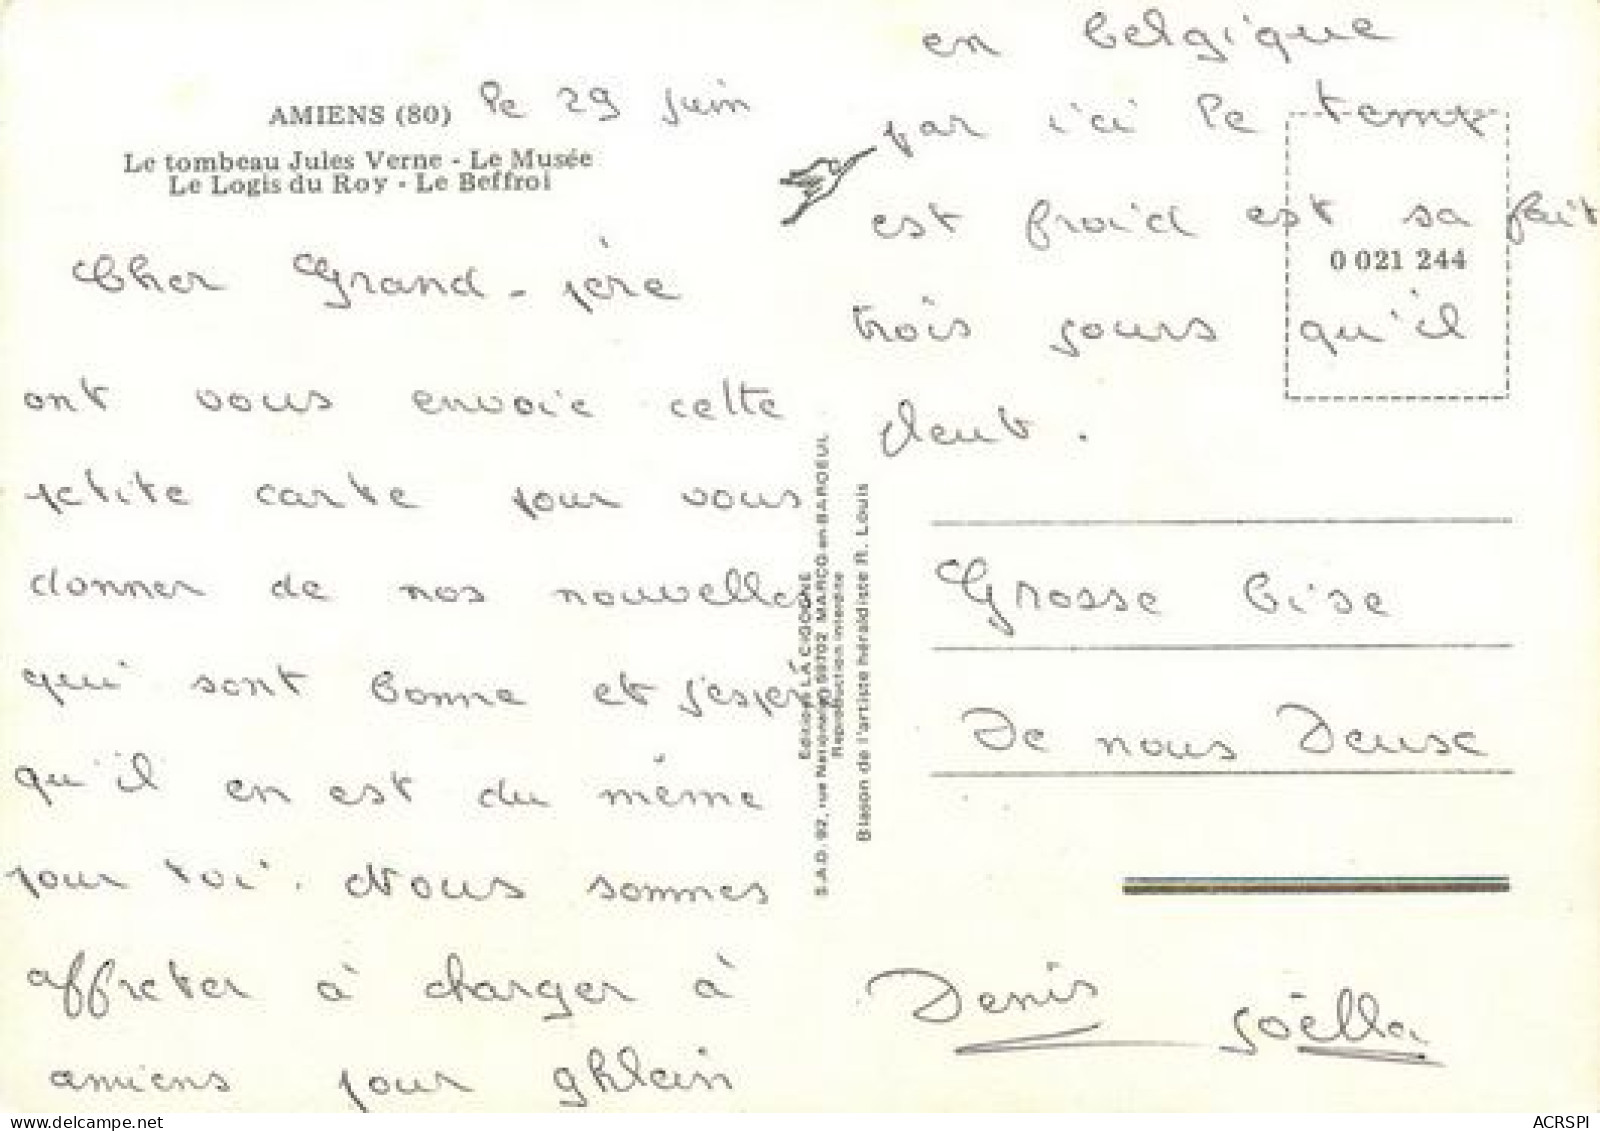 AMIENS (80) le 29 juin
Le tombeau Jules Verne - Le Musée
Le Logis du Roy - Le Beffroi
Cher Grand-père
ont vous envoie cette
petite carte pour vous
donner de nos nouvelles
qui sont bonne et j'espère
qu'il en est du même
pour toi. Nous sommes
affreter à charger à
amiens pour ghlain
en belgique
par ici le temp
est froid est sa fait
0 021 244
trois jours qu'il
pleut.
Grosse bise
De nous Deuse
Denis Joëlla
Editions LA CIGOGNE
S.A.D. 92, rue Nationale, 59702 MARCQ-en-BAROEUL
Reproduction interdite
Blason de l'artiste héraldiste R. Louis
ACRSPI